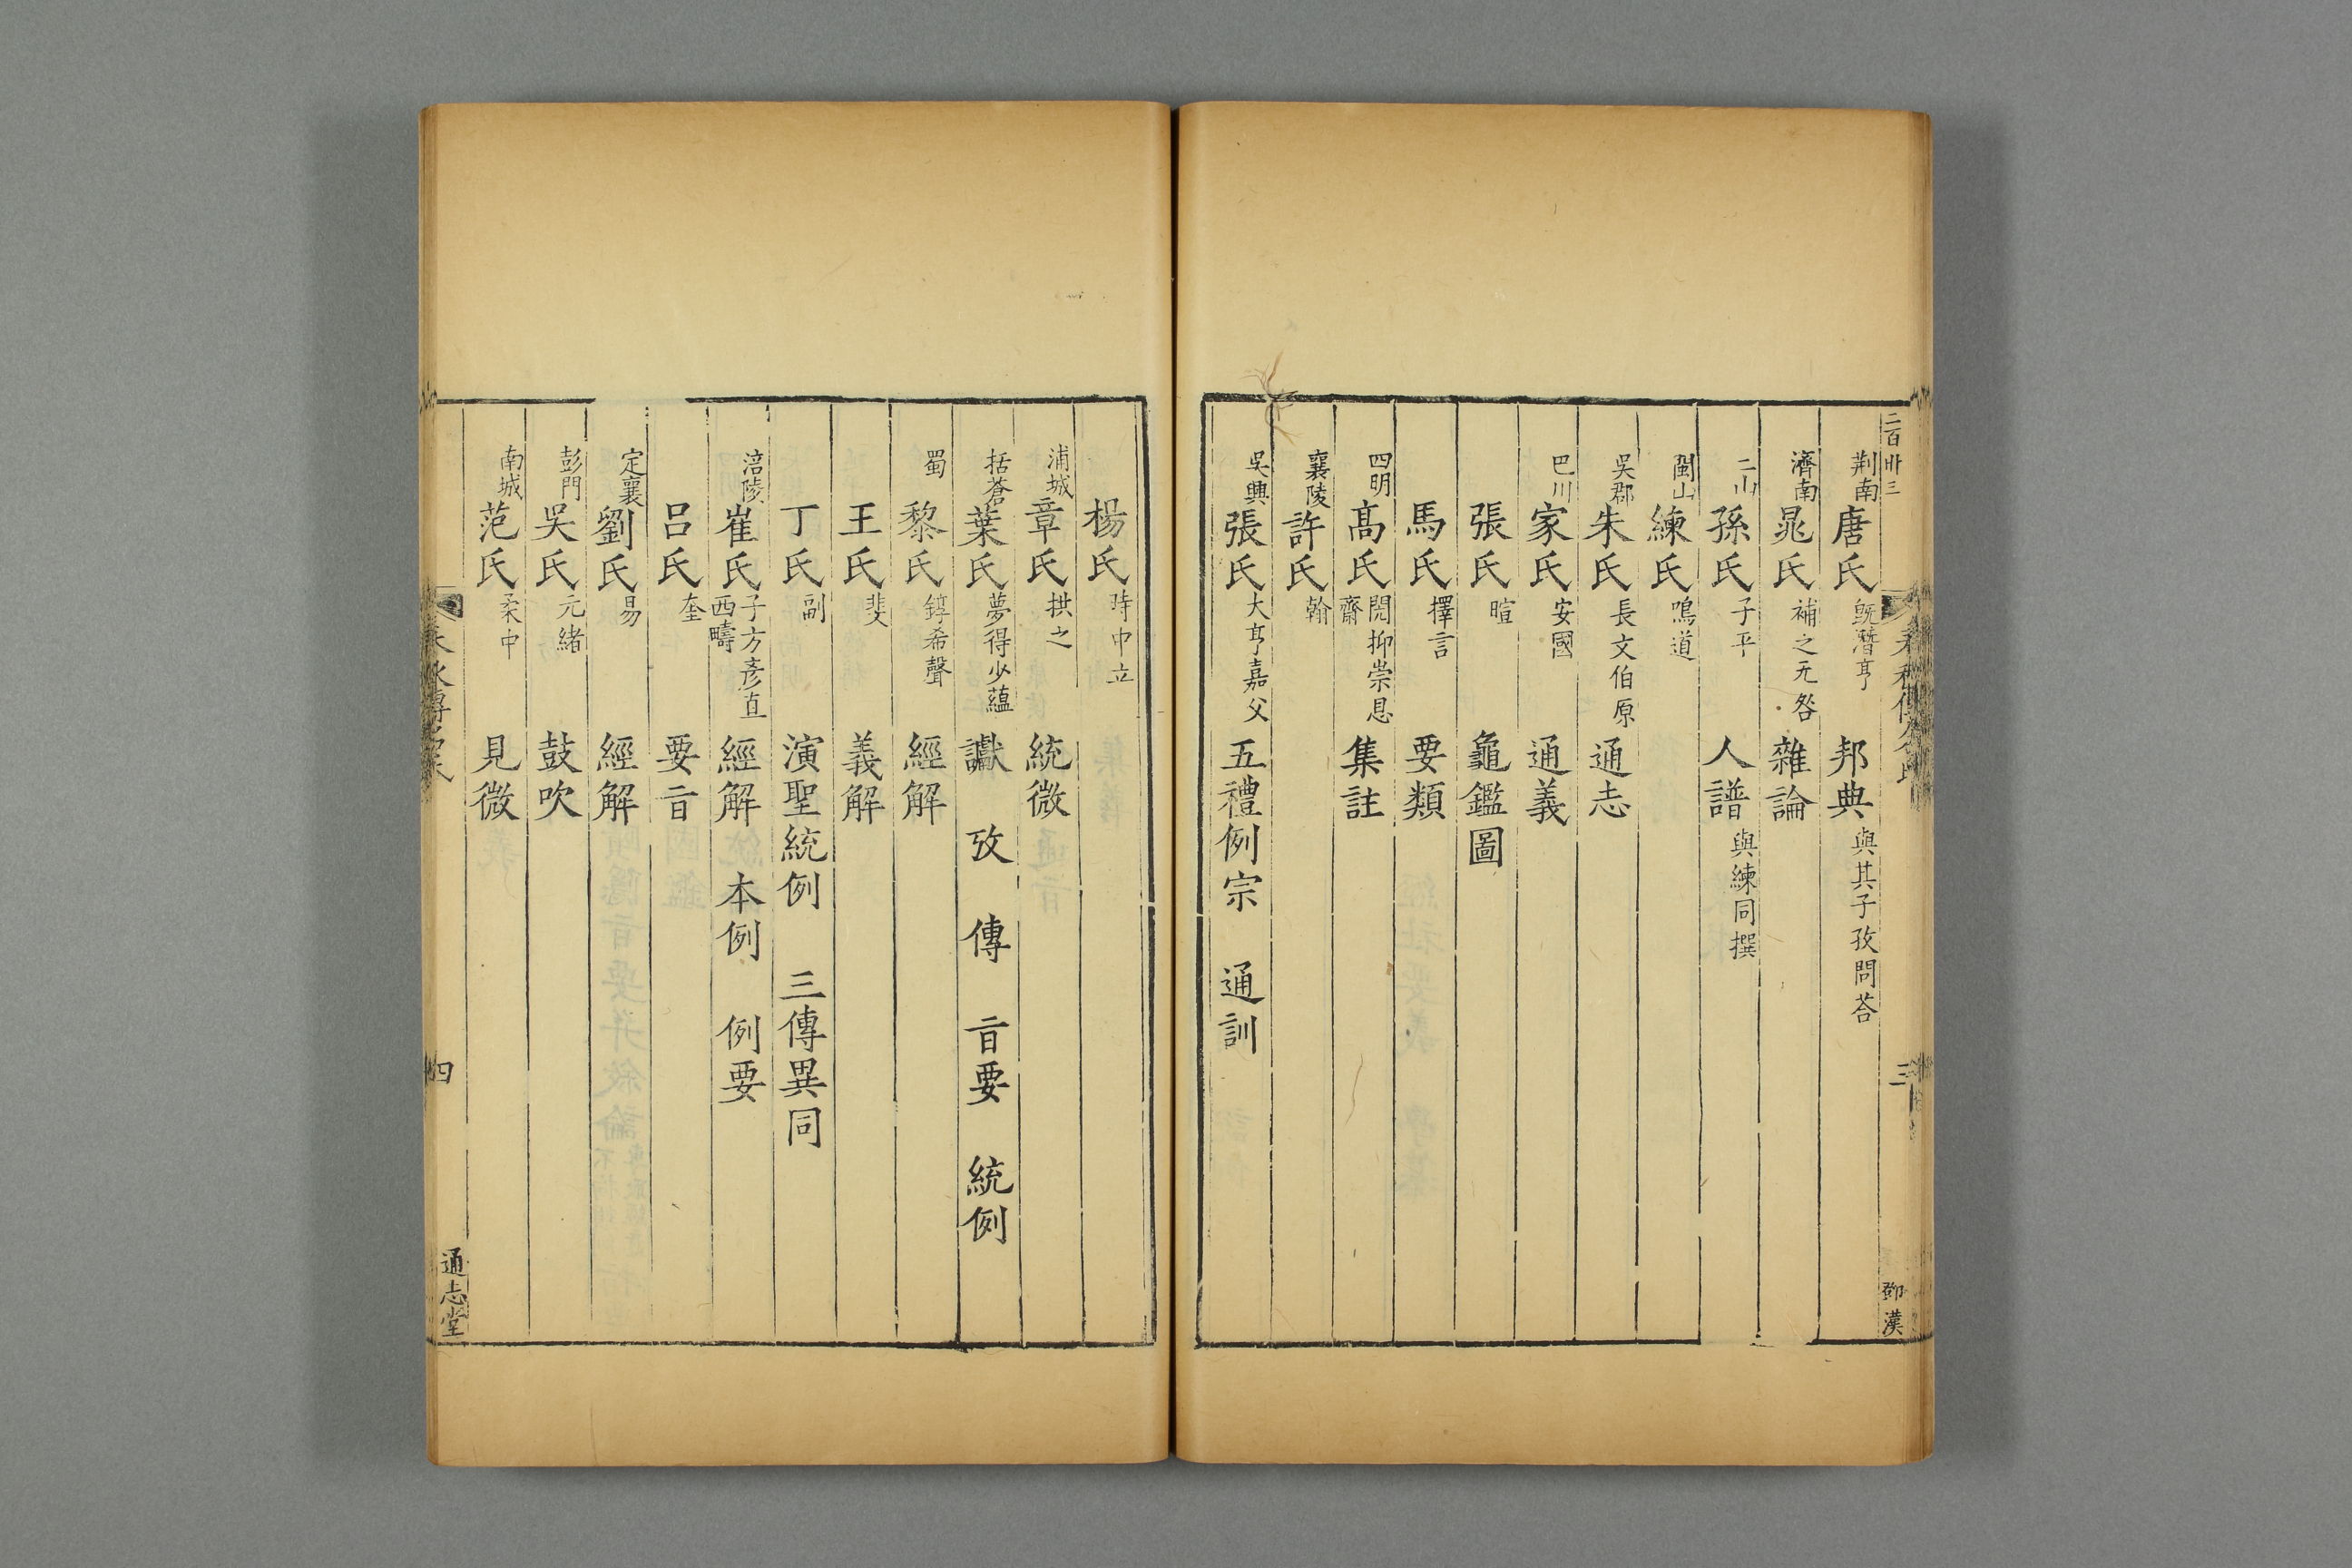 二百卅三
荆南唐氏既濟潛亨 邦典與其子孜問荅
濟南晁氏補之无咎 雜論
二山孫氏子平 人譜與練同撰
閩山練氏鳴道
吳郡朱氏長文伯原 通志
巴川家氏安國 通義
張氏暄 龜鑑圖
馬氏擇言 要類
四明髙氏閌抑崇息齋 集註
襄陵許氏翰
吳興張氏大亨嘉父 五禮例宗 通訓
三
鄧漢
楊氏時中立
浦城章氏拱之 統微
括蒼葉氏夢得少蘊 讞 攷 傳 㫖要 統例
蜀黎氏錞希聲 經解
王氏棐 義解
丁氏副 演聖統例 三傳異同
涪陵崔氏子方彥直西疇 經解 本例 例要
呂氏奎 要㫖
定襄劉氏易 經解
彭門吳氏元緒 鼓吹
南城范氏柔中 見微
四
通志堂